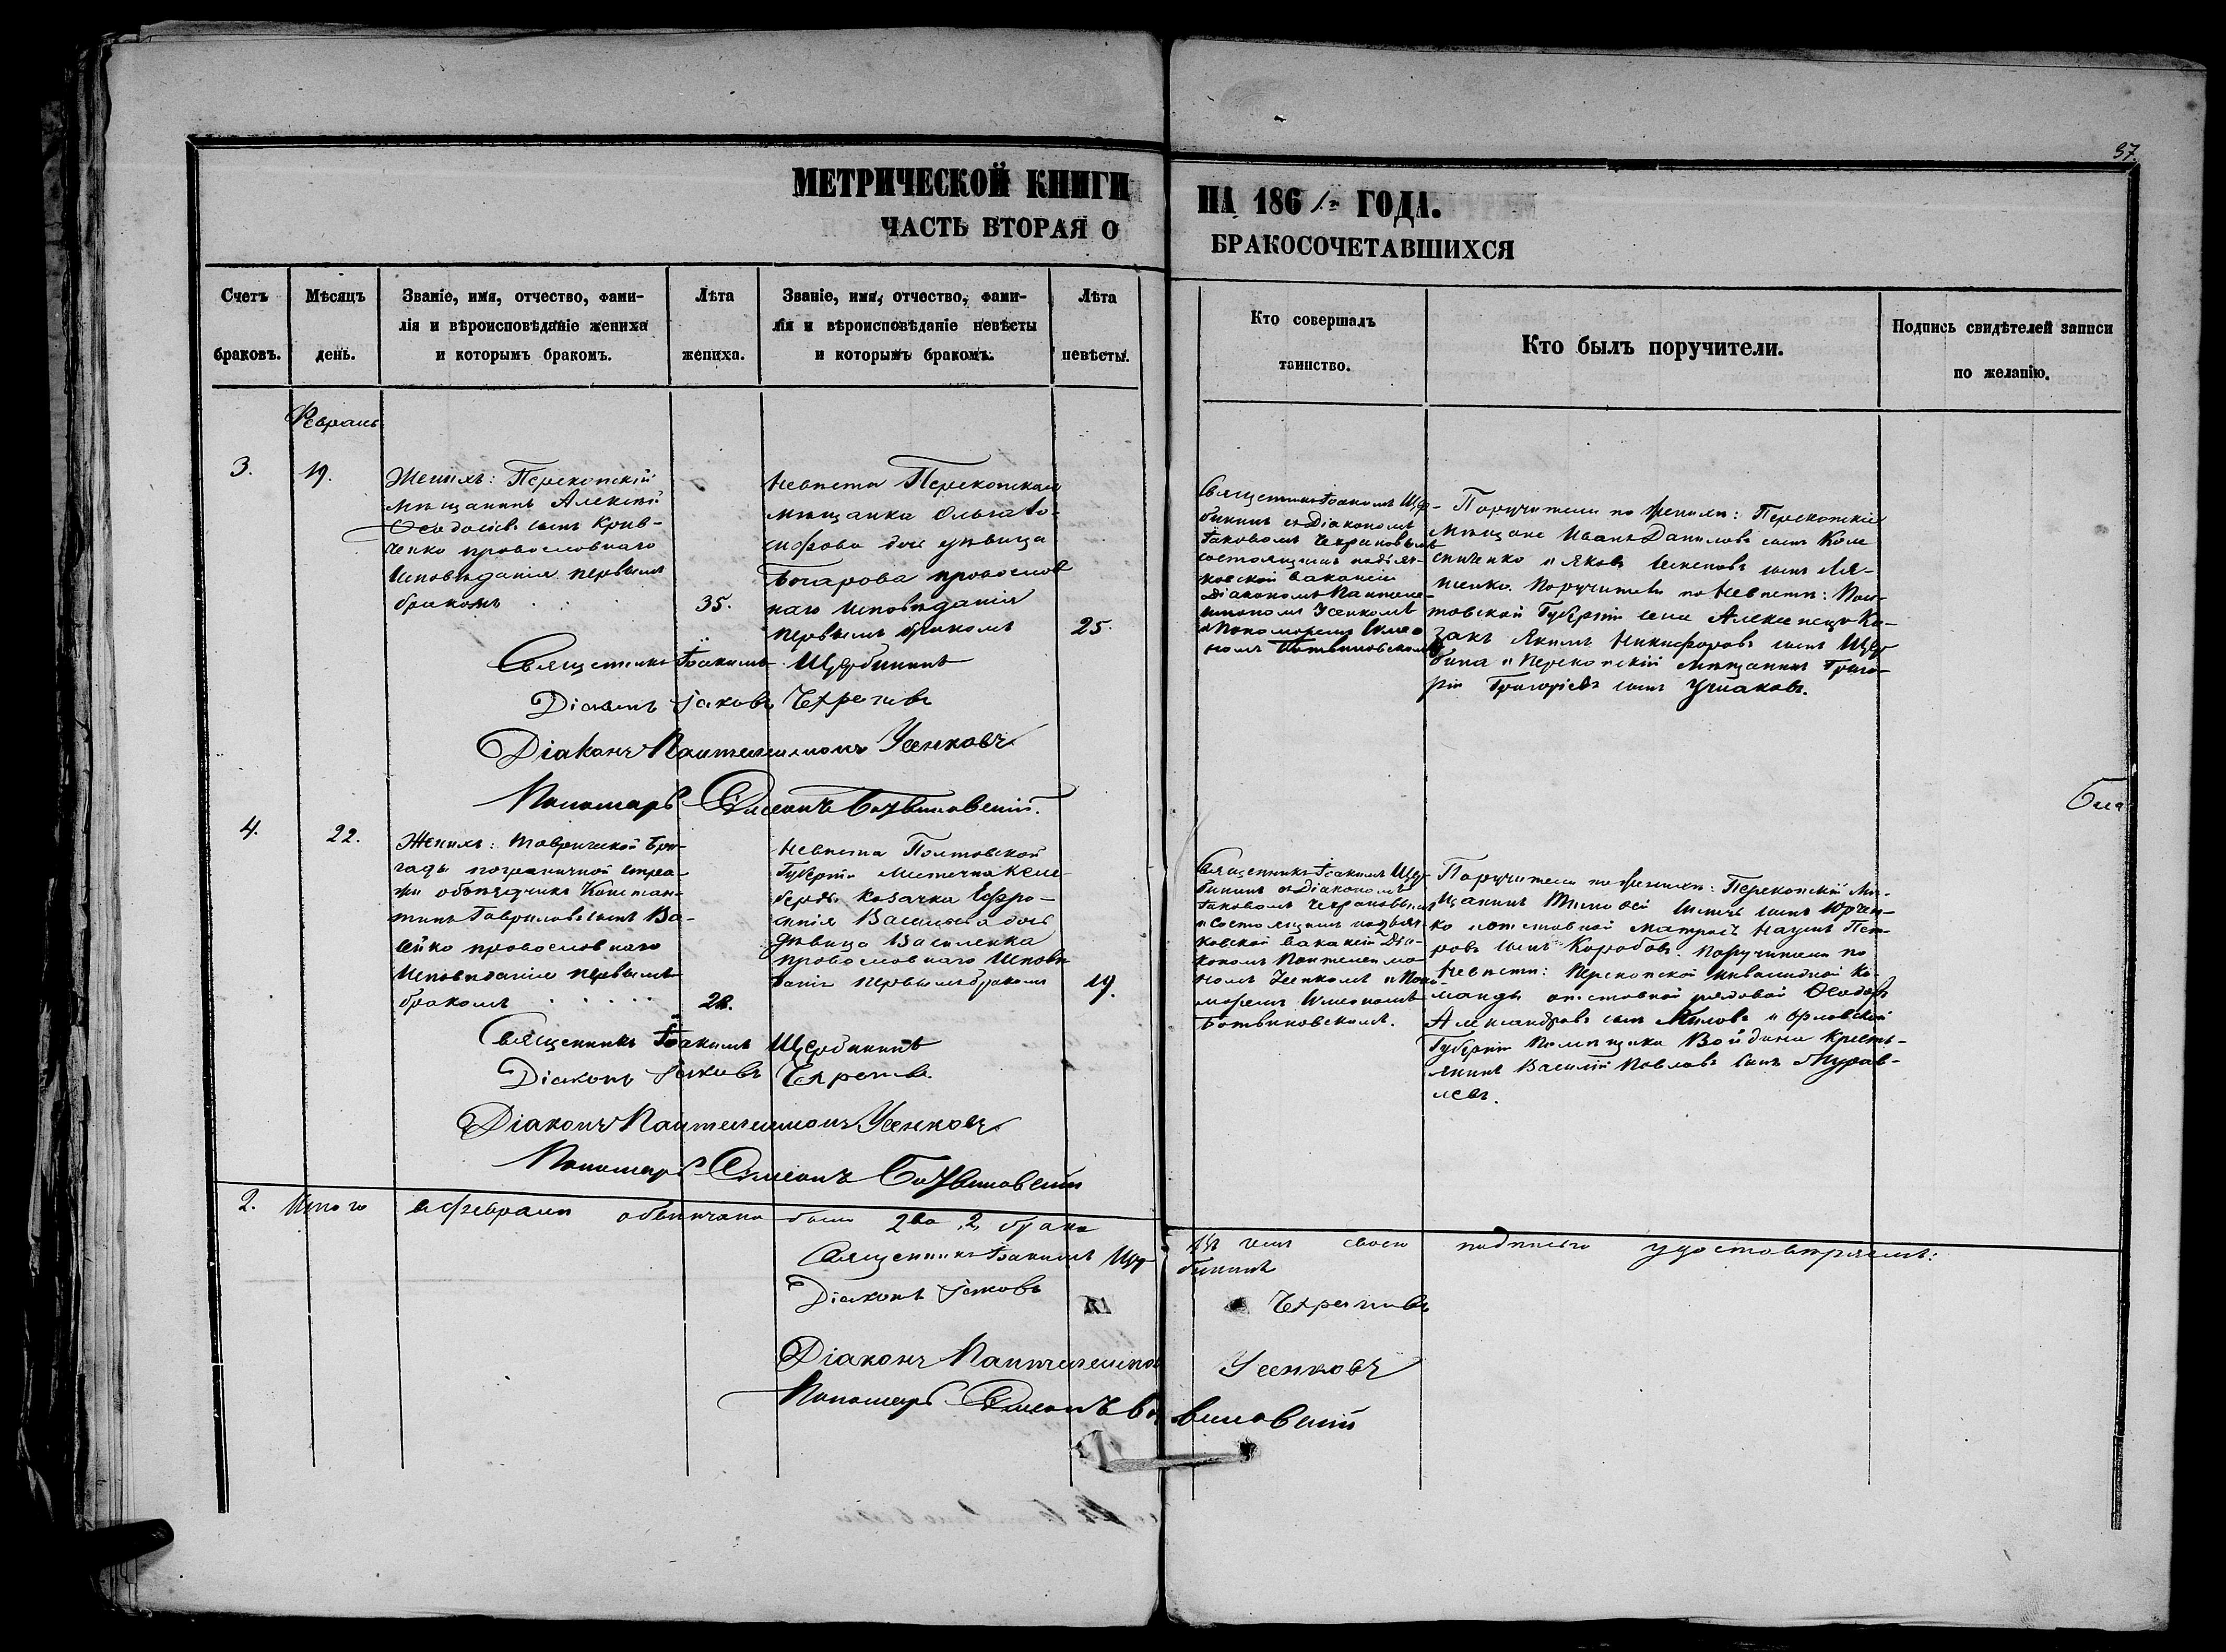 37.
МЕТРИЧЕСКОЙ КНИГИ
НА 186 1го ГОДА.
ЧАСТЬ ВТОРАЯ О
БРАКОСОЧЕТАВШИХСЯ
Счетъ
браковъ.
Мѣсяцъ
день.
Званіе, имя, отчество, фами-
лія и вѣроисповѣданіе жениха
и которымъ бракомъ.
Лѣта
жениха.
Званіе, имя, отчество, фами-
лія и вѣроисповѣданіе невѣсты
и которымъ бракомъ.
Лѣта
невѣсты.
Кто совершалъ
таинство.
Кто былъ поручители.
Подпись свидѣтелей записи
по желанію.
Февраль
3.
19.
Женихъ: Перекопскій
мѣщанинъ Алексѣй
Ѳеодосіевъ сынъ Крив-
ченко православнаго
исповѣданія первымъ
бракомъ
35.
Невѣста Перекопская
мѣщанка Ольга Іо-
сифова дочь дѣвица
Бочарова православ
наго исповѣданія
первымъ бракомъ
25.
Священникъ Іоакимъ Щер-
бининъ съ Діакономъ
Іаковомъ Чехрановымъ
состоящимъ на дьяч-
ковской вакансіи
діакономъ Пантеле-
имономъ Усенкомъ
и пономаремъ Симео
номъ Ботвиновскимъ
Поручители по женихѣ: Перекопскіе
мѣщане Иванъ Даниловъ сынъ Коле
сниченко и Яковъ сынъ Ля-
шенко. Поручители по невѣстѣ: Пол-
тавской Губерніи села Ка-
закъ Якимъ Никифоровъ сынъ Щер
бина и Перекопскій мѣщанинъ Григо-
рій Григорьевъ сынъ Ушаковъ.
Священникъ Іоакимъ Щербининъ
Діаконъ Іаковъ
Діаконъ Пантелеимонъ Усенковъ
Пономарь Симеонъ Ботвиновскій.
4.
22.
Женихъ: Таврической Бри-
гады пограничной стра-
жи объѣздчикъ Констан-
тинъ Гавриловъ сынъ Ва-
сейко православнаго
исповѣданія первымъ
бракомъ
28.
Невѣста Полтавской
Губерніи местечка Келе
берды Козачка Евфро-
синія Васильева дочь
дѣвица Василенка
православнаго исповѣ
данія первымъ бракомъ
19.
Священникъ Іоакимъ Щер-
бининъ съ Діакономъ
Іаковомъ Чехрановымъ
и состоящимъ на дьяч-
ковской вакансіи Діа-
кономъ Пантелеимо
номъ Усенкомъ и Поно-
маремъ Симеономъ
Ботвиновскимъ.
Поручители по женихѣ: Перекопскій мѣ-
щанинъ Тимоѳей сынъ Юрчен-
ко и отставной матросъ Наумъ Пет-
ровъ сынъ Коробовъ. Поручители по
невѣстѣ: Перекопской инвалидной ко-
манды отставной рядовой Ѳеодоръ
Александровъ сынъ Миловъ и Орловской
Губерніи Помѣщика Войдина кресть-
янинъ Василій Павловъ сынъ Мурав-
левъ.
Священникъ Іоакимъ Щербининъ
Діаконъ Іаковъ
Діаконъ Пантелеимонъ Усенковъ
Пономарь Симеонъ Ботвиновскій
2. Итого въ февралѣ обвѣнчано было два 2 брака
въ чемъ своею подписью удостовѣряемъ:
Священникъ Іоакимъ Щер
бининъ
Діаконъ Іаковъ
Діаконъ Пантелеимонъ Усенковъ
Пономарь Симеонъ Бот
виновскій